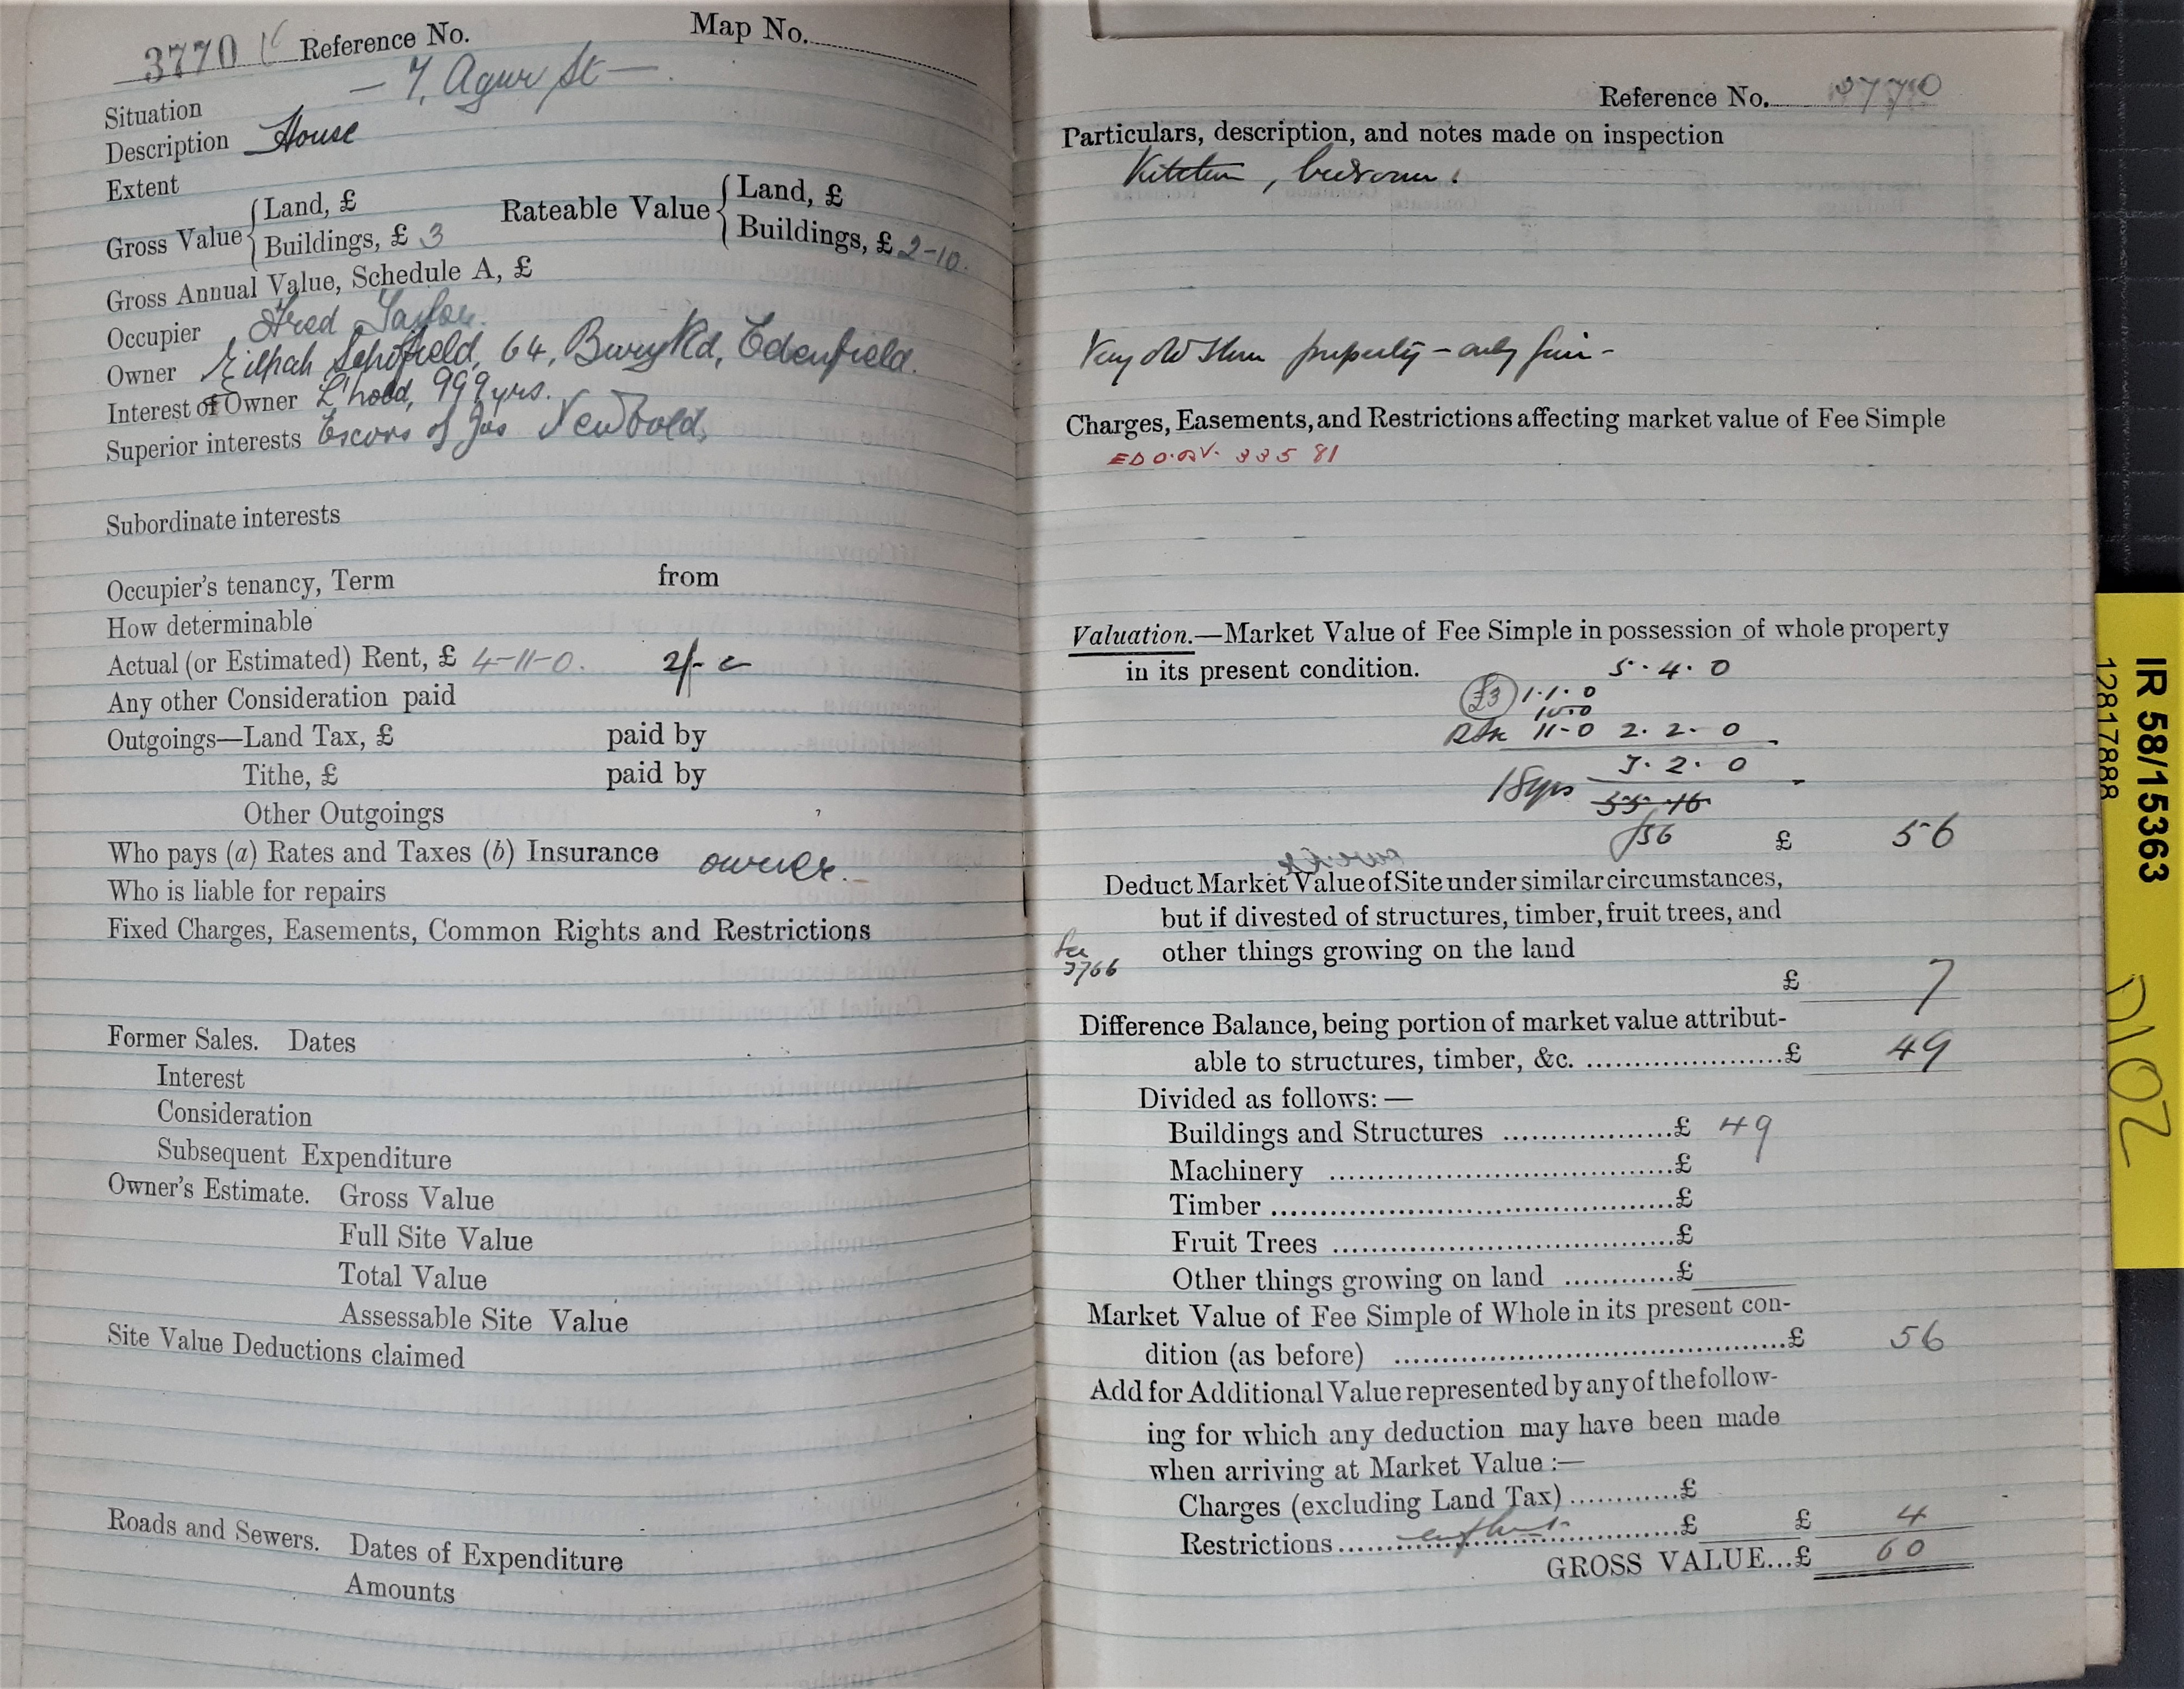 3770 Reference No. Map No.
— 7, Agur St —.
Situation
Description House
Extent
Gross Value { Land, £
Buildings, £ 3
Rateable Value { Land, £
Buildings, £ 2-10.
Gross Annual Value, Schedule A, £
Occupier Fred Taylor.
Owner Zilpah Schofield, 64, Bury Rd, Edenfield.
Interest of Owner L'hold, 999 yrs.
Superior interests Excors of Jas Newbold,
Subordinate interests
Occupier's tenancy, Term from
How determinable
Actual (or Estimated) Rent, £ 4-11-0. 2/-
Any other Consideration paid
Outgoings—Land Tax, £ paid by
Tithe, £ paid by
Other Outgoings
Who pays (a) Rates and Taxes (b) Insurance owner.
Who is liable for repairs
Fixed Charges, Easements, Common Rights and Restrictions
Former Sales. Dates
Interest
Consideration
Subsequent Expenditure
Owner's Estimate. Gross Value
Full Site Value
Total Value
Assessable Site Value
Site Value Deductions claimed
Roads and Sewers. Dates of Expenditure
Amounts
Reference No. 3770
Particulars, description, and notes made on inspection
Kitchen, bedroom.
Very old stone property — only fair —
Charges, Easements, and Restrictions affecting market value of Fee Simple
Valuation.—Market Value of Fee Simple in possession of whole property
in its present condition. 5. 4. 0
£3 1. 1. 0
10.0
11-0 2. 2. 0
3. 2. 0
18 yrs 55. 16
£56 £ 56
Deduct Market Value of Site under similar circumstances,
but if divested of structures, timber, fruit trees, and
other things growing on the land
See
3766
£ 7
Difference Balance, being portion of market value attribut-
able to structures, timber, &c. £ 49
Divided as follows:—
Buildings and Structures £ 49
Machinery £
Timber £
Fruit Trees £
Other things growing on land £
Market Value of Fee Simple of Whole in its present con-
dition (as before) £ 56
Add for Additional Value represented by any of the follow-
ing for which any deduction may have been made
when arriving at Market Value:—
Charges (excluding Land Tax) £
Restrictions £ £ 4
GROSS VALUE...£ 60
IR 58/15363
12817888